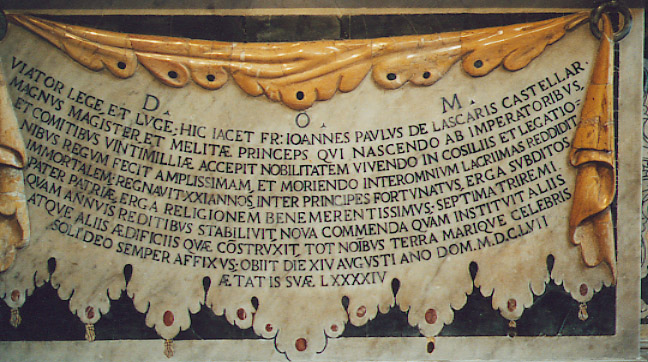 D. O. M.
VIATOR LEGE ET LUGE; HIC IACET FR: IOANNES PAVLVS DE LASCARIS CASTELLAR·
MAGNVS MAGISTER ET MELITÆ PRINCEPS QVI NASCENDO AB IMPERATORIBVS,
ET COMITIBVS VINTIMILLIÆ ACCEPIT NOBILITATEM VIVENDO IN COSILIIS ET LEGATIO=
NIBVS REGVM FECIT AMPLISSIMAM, ET MORIENDO INTEROMNIVM LACRIMAS REDDIDIT
IMMORTALEM: REGNAVIT XXIANNOS, INTER PRINCIPES FORTVNATVS, ERGA SVBDITOS
PATER PATRIÆ, ERGA RELIGIONEM BENEMERENTISSIMVS; SEPTIMA TRIREMI
QVAM ANNVIS REDITIBVS STABILIVIT, NOVA COMMENDA QVAM INSTITVIT ALIIS
ATQVE ALIIS ÆDIFICIIS QVÆ CŌSTRVXIT, TOT NOĪBVS TERRA MARIQVE CELEBRIS
SOLI DEO SEMPER AFFIXVS: OBIIT DIE XIV AVGVSTI ANO DOM. M.DC.LVII
ÆTATIS SVÆ LXXXXIV